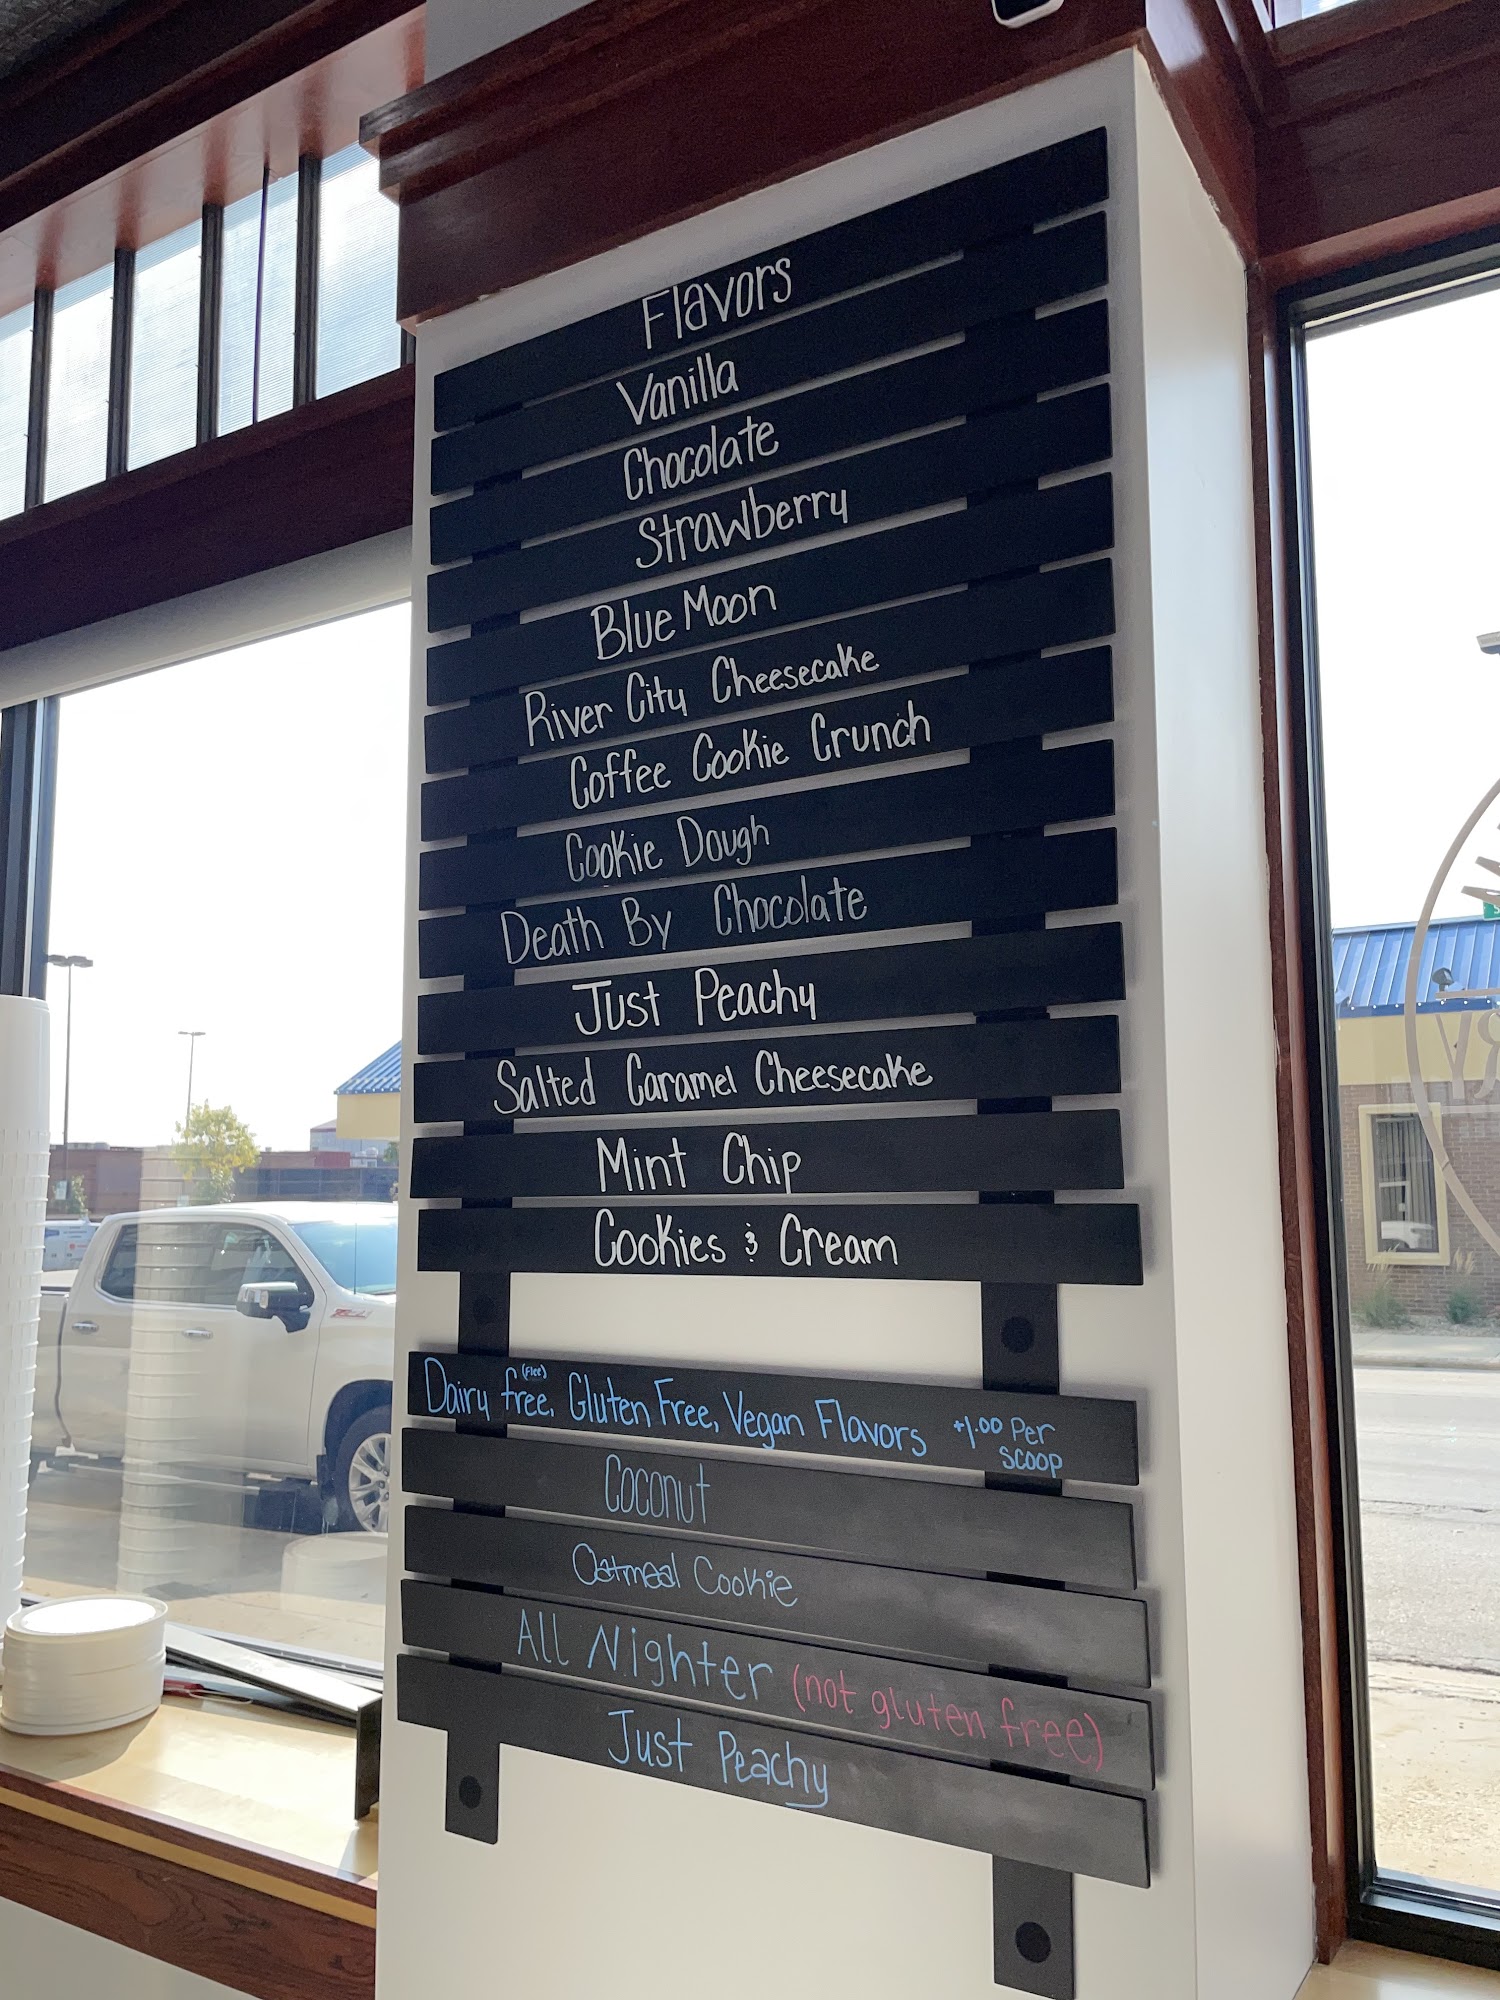 Flavors
Vanilla
Chocolate
Strawberry
Blue Moon
River City Cheesecake
Coffee Cookie Crunch
Cookie Dough
Death By Chocolate
Just Peachy
Salted Caramel Cheesecake
Mint Chip
Cookies & Cream
(Flee)
Dairy free, Gluten Free, Vegan Flavors +1.00 Per
scoop
Coconut
Oatmeal Cookie
All Nighter (not gluten free)
Just Peachy